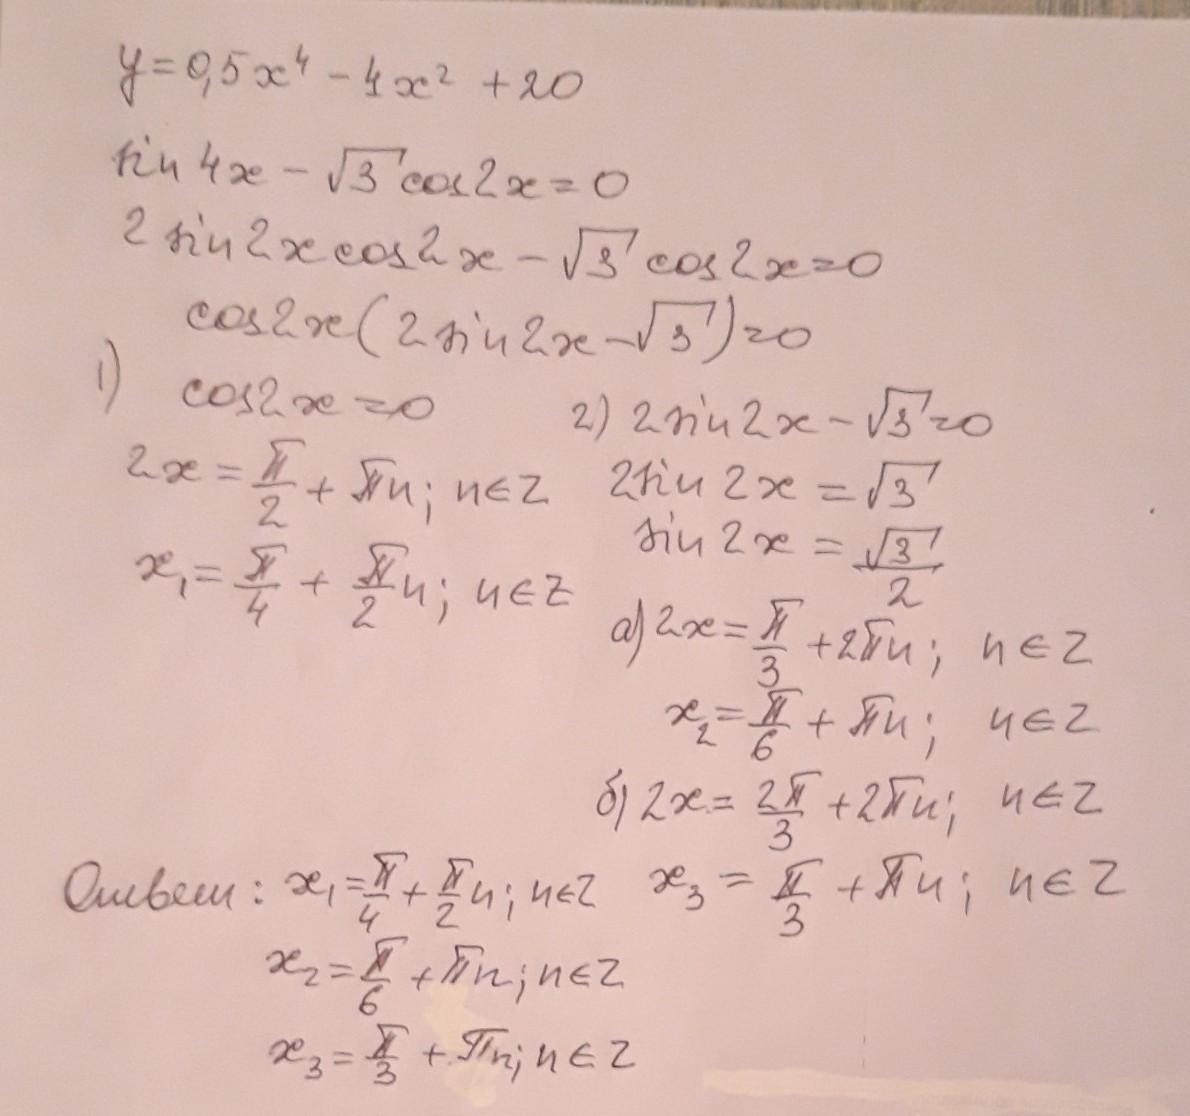 y=0,5x⁴ - 4x² + 20
sin 4x - √3 cos2x = 0
2 sin2x cos2x - √3 cos2x = 0
cos2x(2 sin2x - √3) = 0
1) cos2x = 0
2x = π/2 + πn; n∈Z
x₁ = π/4 + π/2 n; n∈Z
2) 2sin2x - √3 = 0
2sin 2x = √3
sin 2x = √3/2
а) 2x = π/3 + 2πn; n∈Z
x₂ = π/6 + πn; n∈Z
б) 2x = 2π/3 + 2πn; n∈Z
x₃ = π/3 + πn; n∈Z
Ответ: x₁ = π/4 + π/2 n; n∈Z
x₂ = π/6 + πn; n∈Z
x₃ = π/3 + πn; n∈Z